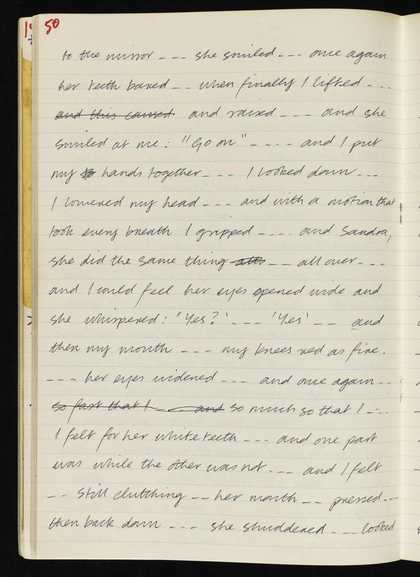 50
to the mirror --- she smiled --- once again
her teeth bared -- when finally I lifted ---
and this caused and raised --- and she
smiled at me: "Go on" ---- and I put
my hands together --- I looked down ---
I lowered my head --- and with a motion that
took every breath I gripped ---- and Sandra,
she did the same thing -- all over ---
and I could feel her eyes opened wide and
she whispered: 'Yes?' --- 'Yes' -- and
then my mouth --- my knees red as fire.
--- her eyes widened --- and once again --
so fast that I -- and so much so that I ---
I felt for her white teeth --- and one part
was while the other was not --- and I felt
-- still clutching -- her mouth -- pressed --
then back down --- she shuddered --- looked